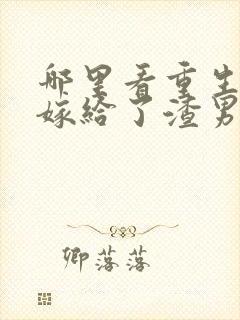 那里看重生
嫁给了渣男
卿落落